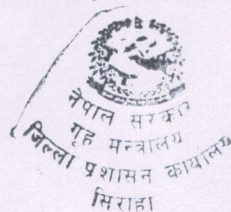 नेपाल सरकार
गृह मन्त्रालय
जिल्ला प्रशासन कार्यालय
सिराहा